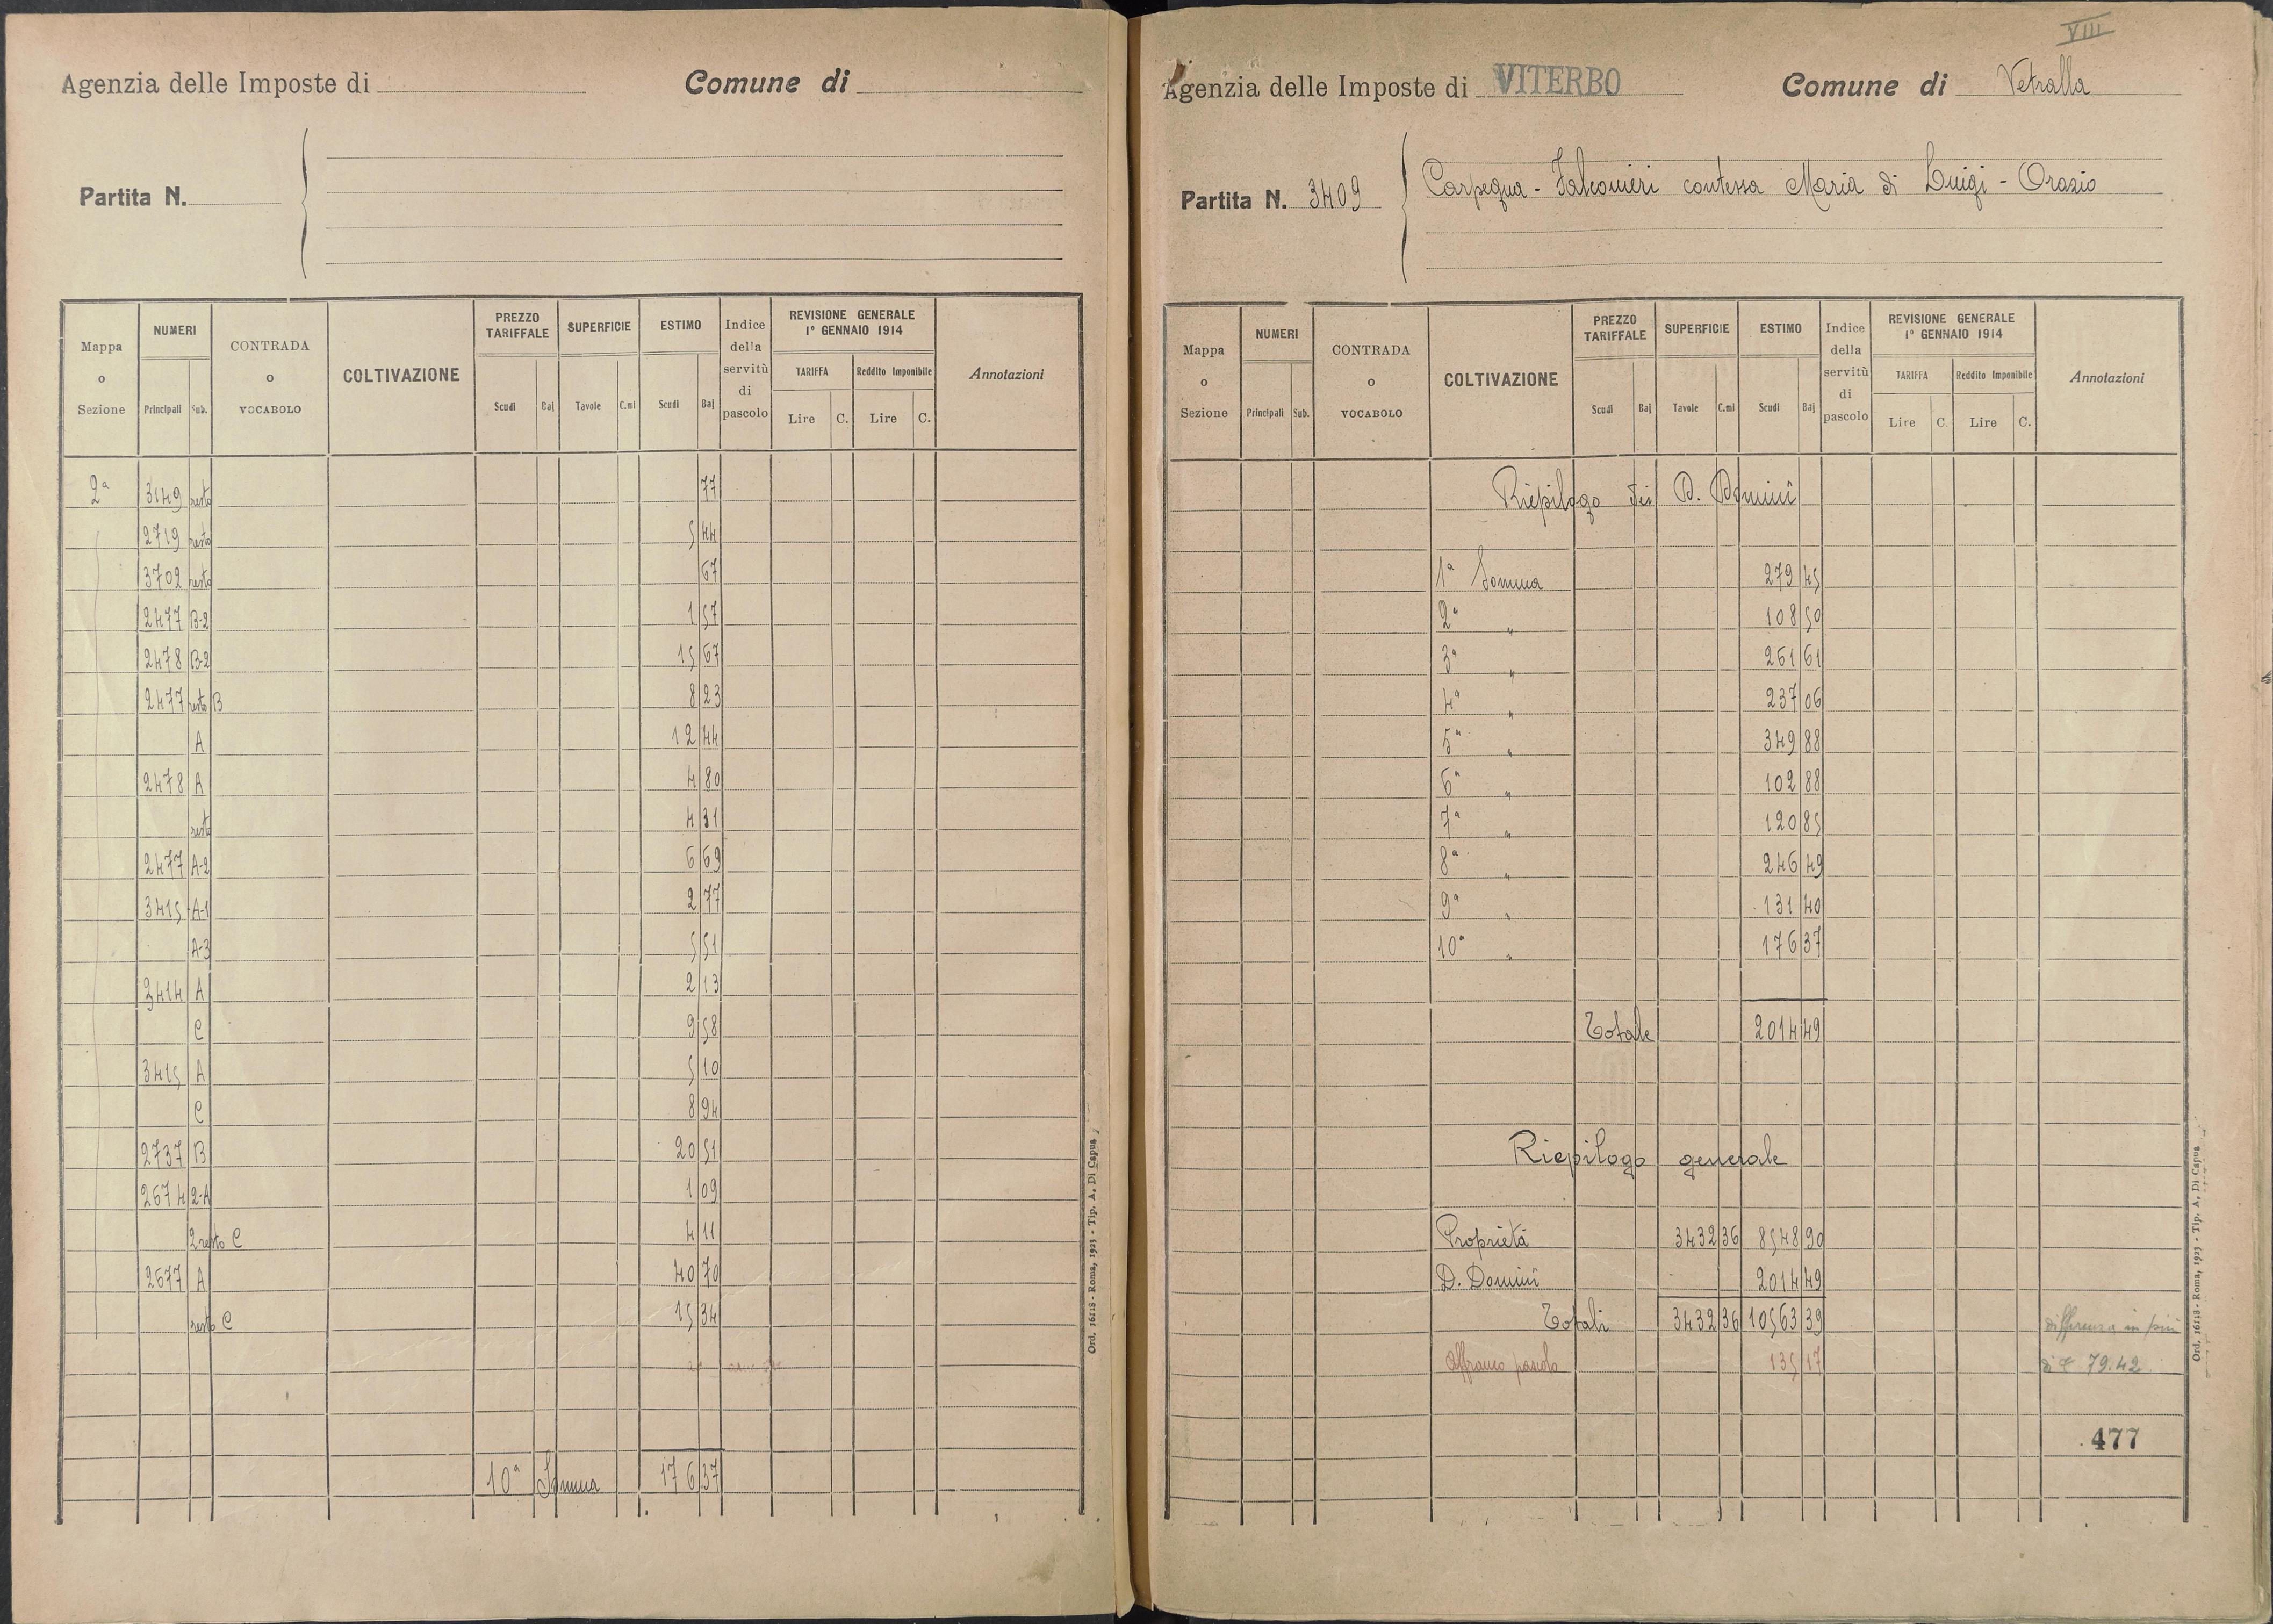 Agenzia delle Imposte di
Comune di
Partita N.
Mappa o Sezione | NUMERI Principali Sub. | CONTRADA o VOCABOLO | COLTIVAZIONE | PREZZO TARIFFALE Scudi Baj | SUPERFICIE Tavole C.mi | ESTIMO Scudi Baj | Indice della servitù di pascolo | REVISIONE GENERALE 1º GENNAIO 1914 TARIFFA Lire C. Reddito Imponibile Lire C. | Annotazioni
2ª 3149 resto 77
2719 resto 5 44
3702 resto 67
2477 B-2 1 57
2478 B-2 15 67
2477 resto B 8 23
A 12 44
2478 A 4 80
resto 4 31
2477 A-2 6 69
3415 A-1 2 77
A-3 5 51
3414 A 2 13
C 9 58
3415 A 5 10
C 8 94
2737 B 20 51
2674 2-A 1 09
2 resto C 4 11
2677 A 40 70
resto C 15 34
10ª Somma 176 37
Ord. 16118 - Roma, 1923 - Tip. A. Di Capua
VIII
Agenzia delle Imposte di VITERBO
Comune di Vetralla
Partita N. 3409
Carpegna - Falconieri contessa Maria di Luigi - Orazio
Mappa o Sezione | NUMERI Principali Sub. | CONTRADA o VOCABOLO | COLTIVAZIONE | PREZZO TARIFFALE Scudi Baj | SUPERFICIE Tavole C.mi | ESTIMO Scudi Baj | Indice della servitù di pascolo | REVISIONE GENERALE 1º GENNAIO 1914 TARIFFA Lire C. Reddito Imponibile Lire C. | Annotazioni
Riepilogo dei D. Dominî
1ª Somma 279 45
2ª " 108 50
3ª " 261 61
4ª " 237 06
5ª " 349 88
6ª " 102 88
7ª " 120 85
8ª " 246 49
9ª " 131 40
10ª " 176 37
Totale 2014 49
Riepilogo generale
Proprietà 3432 36 8548 90
D. Dominî 2014 49
Totali 3432 36 10563 39
differenza in più
Affranco pascolo 135 17
di 79.42
477
Ord. 16118 - Roma, 1923 - Tip. A. Di Capua